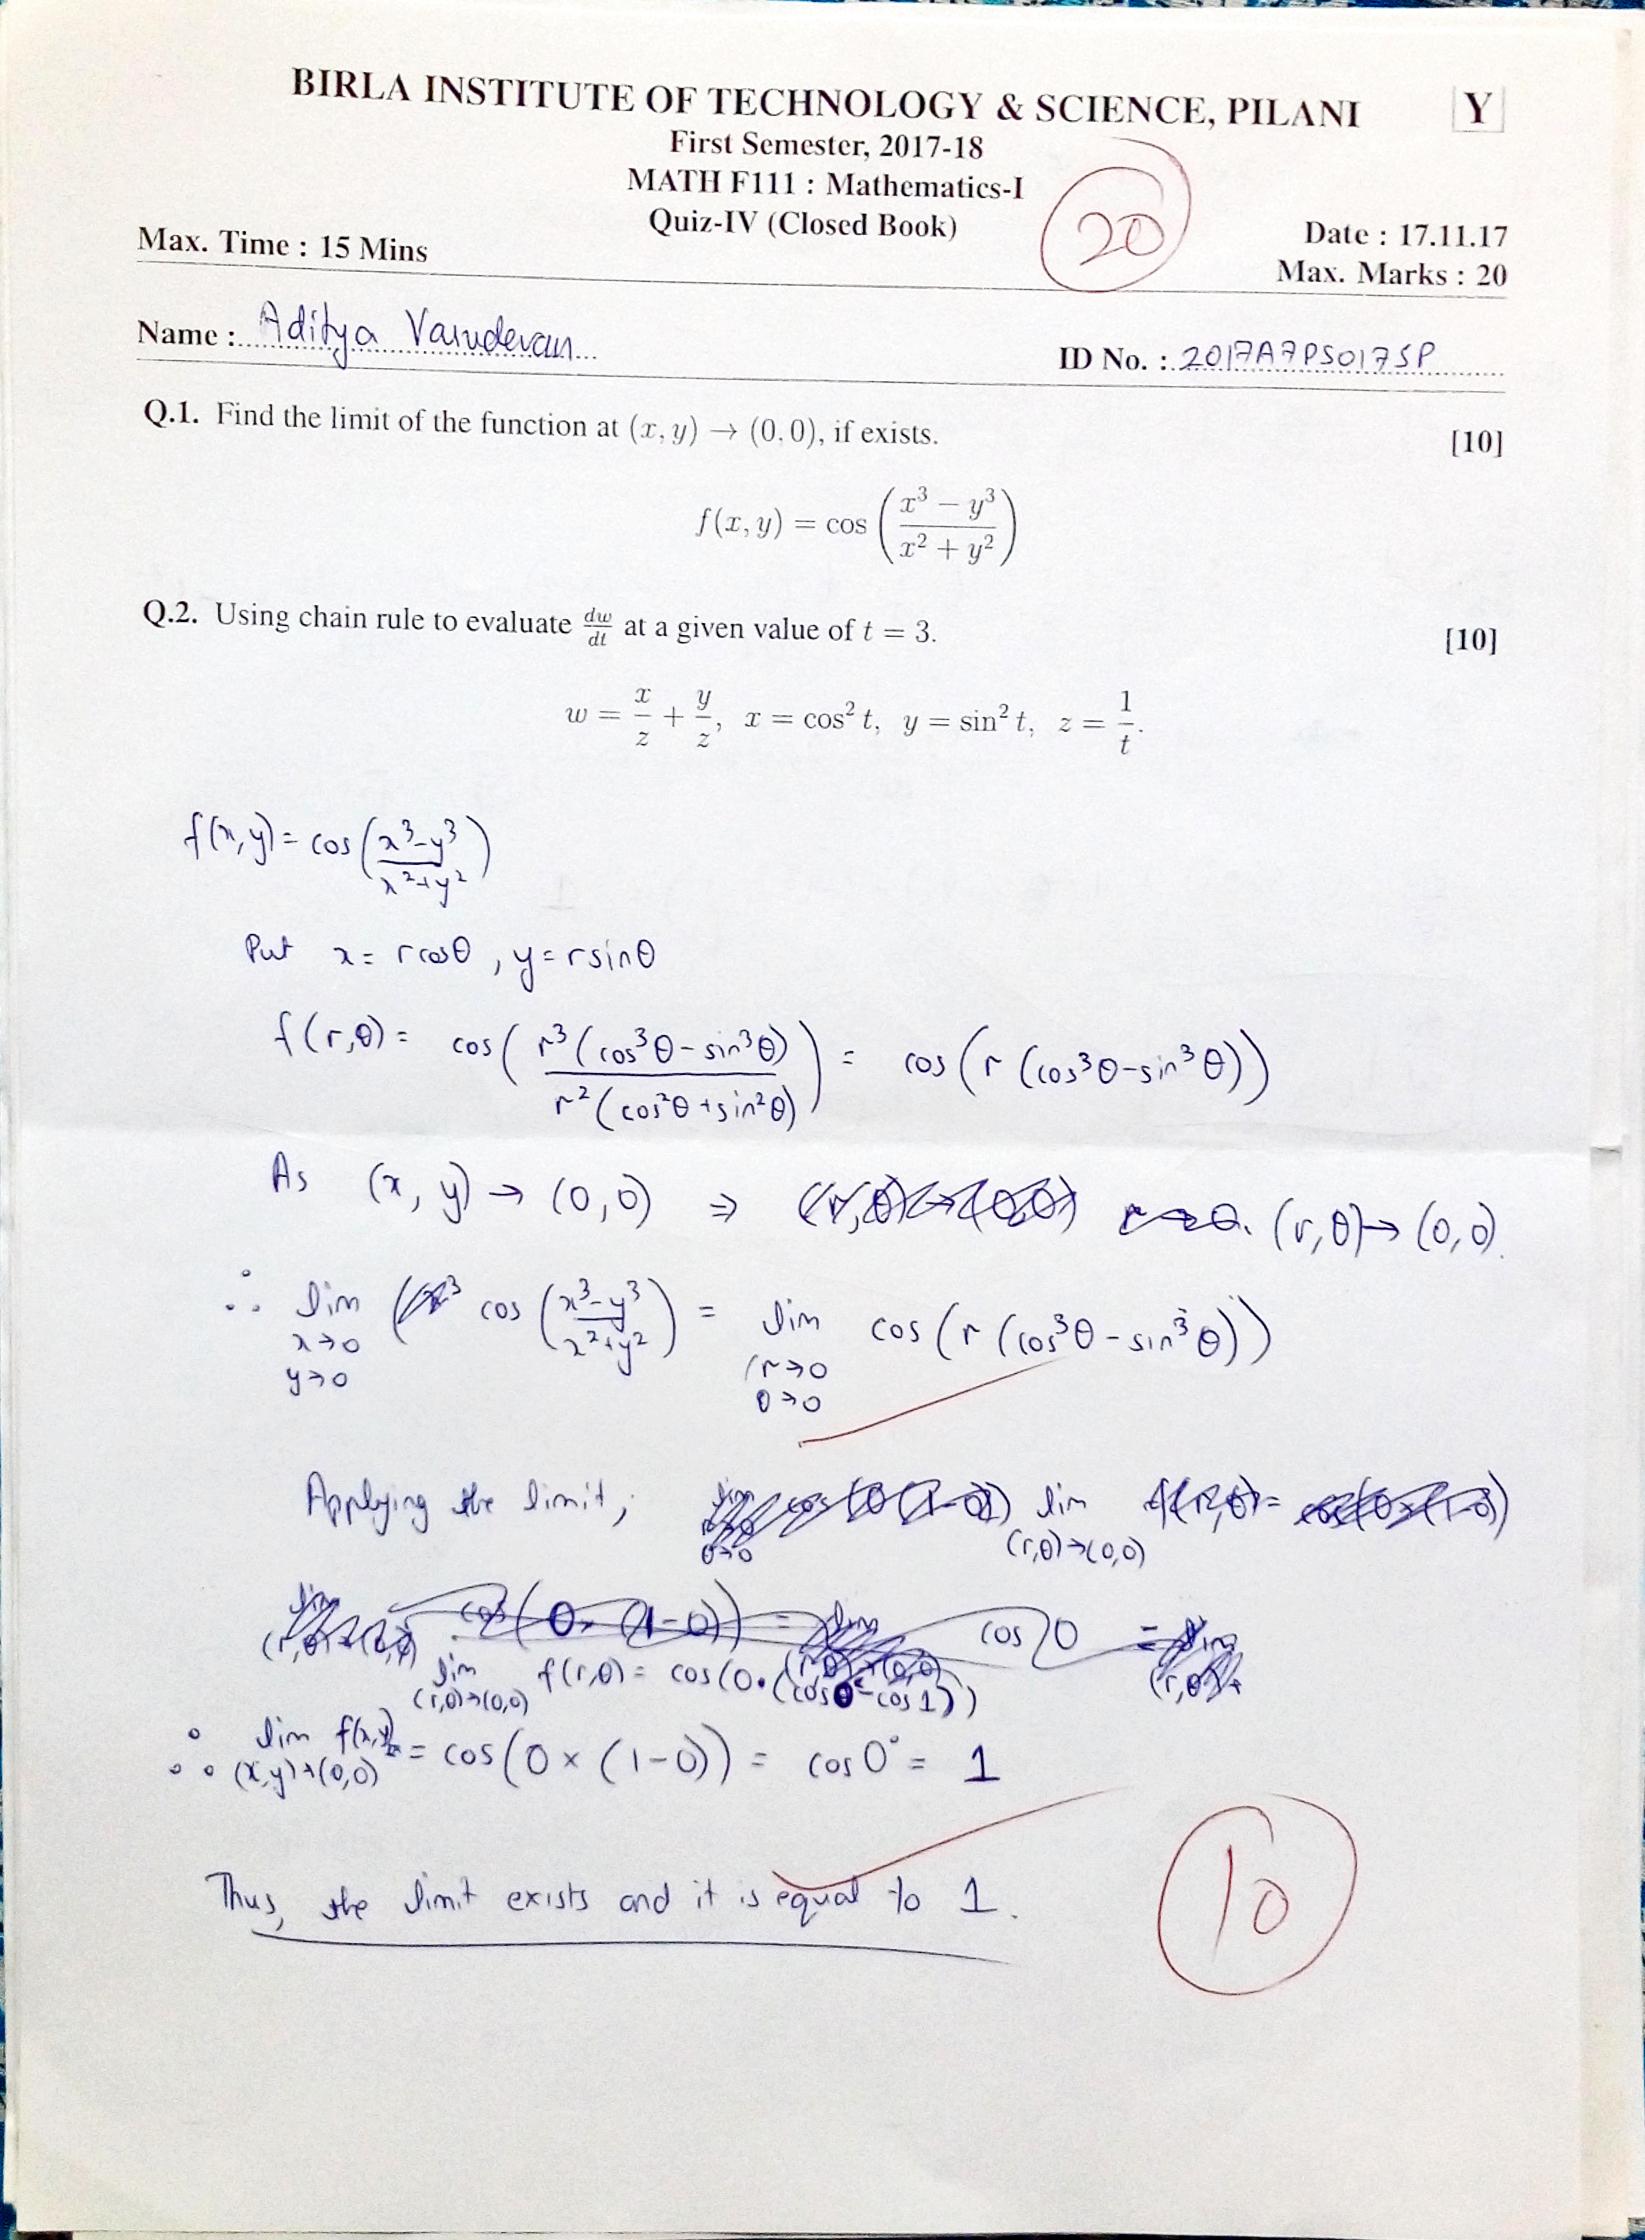 BIRLA INSTITUTE OF TECHNOLOGY & SCIENCE, PILANI Y
First Semester, 2017-18
MATH F111 : Mathematics-I
Quiz-IV (Closed Book)
20
Max. Time : 15 Mins
Date : 17.11.17
Max. Marks : 20
Name : Aditya Vasudevan
ID No. : 2017A7PS0175P
Q.1. Find the limit of the function at (x, y) → (0, 0), if exists. [10]
f(x, y) = cos ( (x³ − y³) / (x² + y²) )
Q.2. Using chain rule to evaluate dw/dt at a given value of t = 3. [10]
w = x/z + y/z, x = cos² t, y = sin² t, z = 1/t.
f(x,y) = cos ( (x³-y³) / (x²+y²) )
Put x = rcosθ , y = rsinθ
f(r,θ) = cos ( r³(cos³θ - sin³θ) / r²(cos²θ + sin²θ) ) = cos (r (cos³θ - sin³θ))
As (x, y) → (0, 0) ⇒ (r, θ) → (0, 0).
∴ lim x→0 y→0 cos ( (x³-y³) / (x²+y²) ) = lim r→0 θ→0 cos (r (cos³θ - sin³θ))
Applying the limit, 
lim (r,θ)→(0,0) f(r,θ) = cos(0.(cos0 - cos1))
∴ lim (x,y)→(0,0) f(x,y) = cos(0 × (1-0)) = cos0° = 1
Thus, the limit exists and it is equal to 1.
10